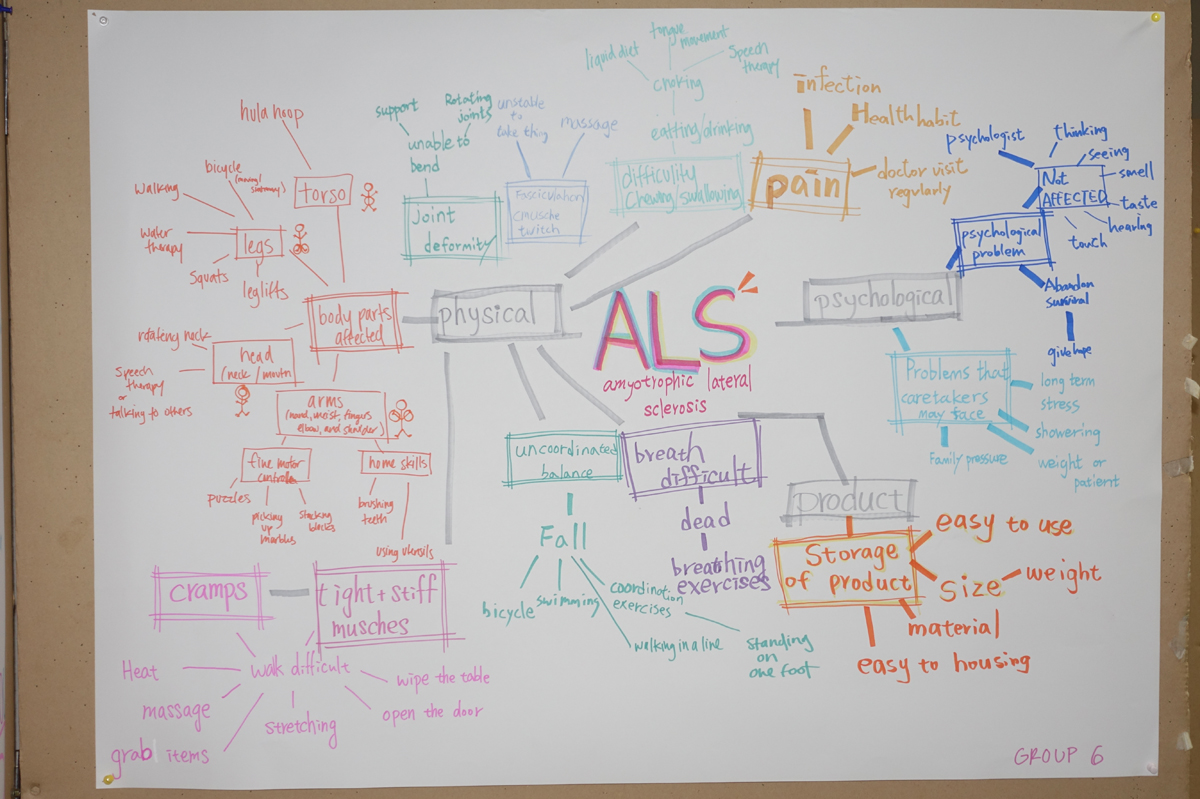 ALS
amyotrophic lateral
sclerosis
physical
body parts
affected
torso
hula hoop
legs
bicycle
walking
water
therapy
squats
leglifts
head
/neck/mouth
rotating neck
speech
therapy
or
talking to others
arms
elbow, and shoulder)
fine motor
puzzles
picking
up
marbles
stacking
blocks
home skills
brushing
teeth
using utensils
Joint
deformity
unable to
bend
support
Rotating
joints
Fasciculation
twitch
unstable
to
take thing
massage
difficulity
Chewing/swallowing
eatting/drinking
choking
liquid diet
tongue
movement
Speech
therapy
pain
infection
Health habit
doctor visit
regularly
psychological
psychological
problem
psychologist
Not
AFFECTED
thinking
seeing
smell
taste
hearing
touch
Abandon
survival
give hope
Problems that
caretakers
may face
long term
stress
showering
weight or
patient
Family pressure
uncoordinated
balance
Fall
bicycle
swimming
coordination
exercises
walking in a line
standing
on
one foot
breath
difficult
dead
breathing
exercises
product
Storage
of product
easy to use
Size
weight
material
easy to housing
cramps
tight + stiff
musches
walk difficult
Heat
massage
grab items
stretching
open the door
wipe the table
GROUP 6